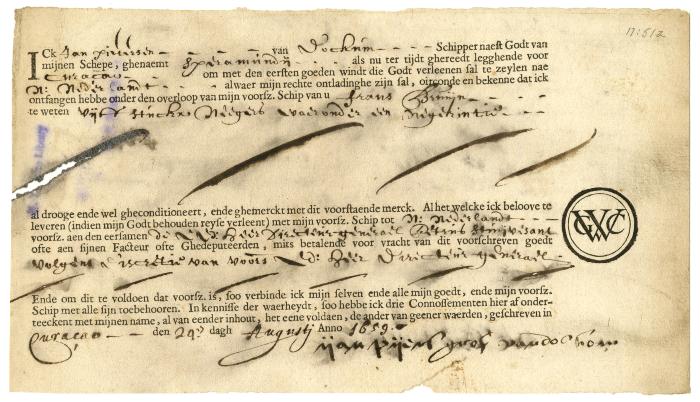 n: 512
ICk Jan Pietersen van Dockum Schipper naest Godt van
mijnen Schepe, ghenaemt Speramundij als nu ter tijdt ghereedt legghende voor
Curacao om met den eersten goeden windt die Godt verleenen sal te zeylen nae
N: Nederlandt alwaer mijn rechte ontladinghe zijn sal, oirconde en bekenne dat ick
ontfangen hebbe onder den overloop van mijn voorsz. Schip van u frans Bruijn
te weten Vijff stucks Neegers waeronder een Negerintie
al drooge ende wel gheconditioneert, ende ghemerckt met dit voorstaende merck. Al het welcke ick beloove te
leveren (indien mijn Godt behouden reyse verleent) met mijn voorsz. Schip tot N: Nederlandt
voorsz. aen den eersamen de Heer Directeur generael Petrus Stuijvesant
ofte aen sijnen Facteur ofte Ghedeputeerden, mits betalende voor vracht van dit voorschreven goedt
volgens discretie van voors d: heer directeur generael
GWC
Ende om dit te voldoen dat voorsz. is, soo verbinde ick mijn selven ende alle mijn goedt, ende mijn voorsz.
Schip met alle sijn toebehooren. In kennisse der waerheydt, soo hebbe ick drie Connossementen hier af onder-
teeckent met mijnen name, al van eender inhout, het eene voldaen, de ander van geener waerden, geschreven in
Curacao den 24 dagh Augustij Anno 1659.